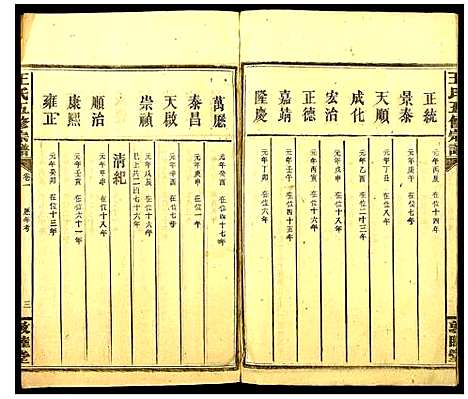 王氏五修宗譜
正統 元年丙辰 在位十四年
景泰 元年庚午 在位七年
天順 元年丁丑 在位八年
成化 在位二十三年
宏治 元年戊申 在位十八年
正德 元年丙寅 在位十六年
嘉靖 元年壬午 在位四十五年
隆慶 元年丁卯 在位六年
萬歷 元年癸酉 在位四十七年
泰昌 元年庚申 在位一月
天啟 元年辛酉 在位七年
崇禎 元年戊辰 在位十六年
已上共二百七十六年
清紀
順治 元年甲申 在位十八年
康熙 元年壬寅 在位六十一年
雍正 元年癸卯 在位十三年
王氏五修宗譜 卷一 歷年考 三
敦睦堂
敦睦堂